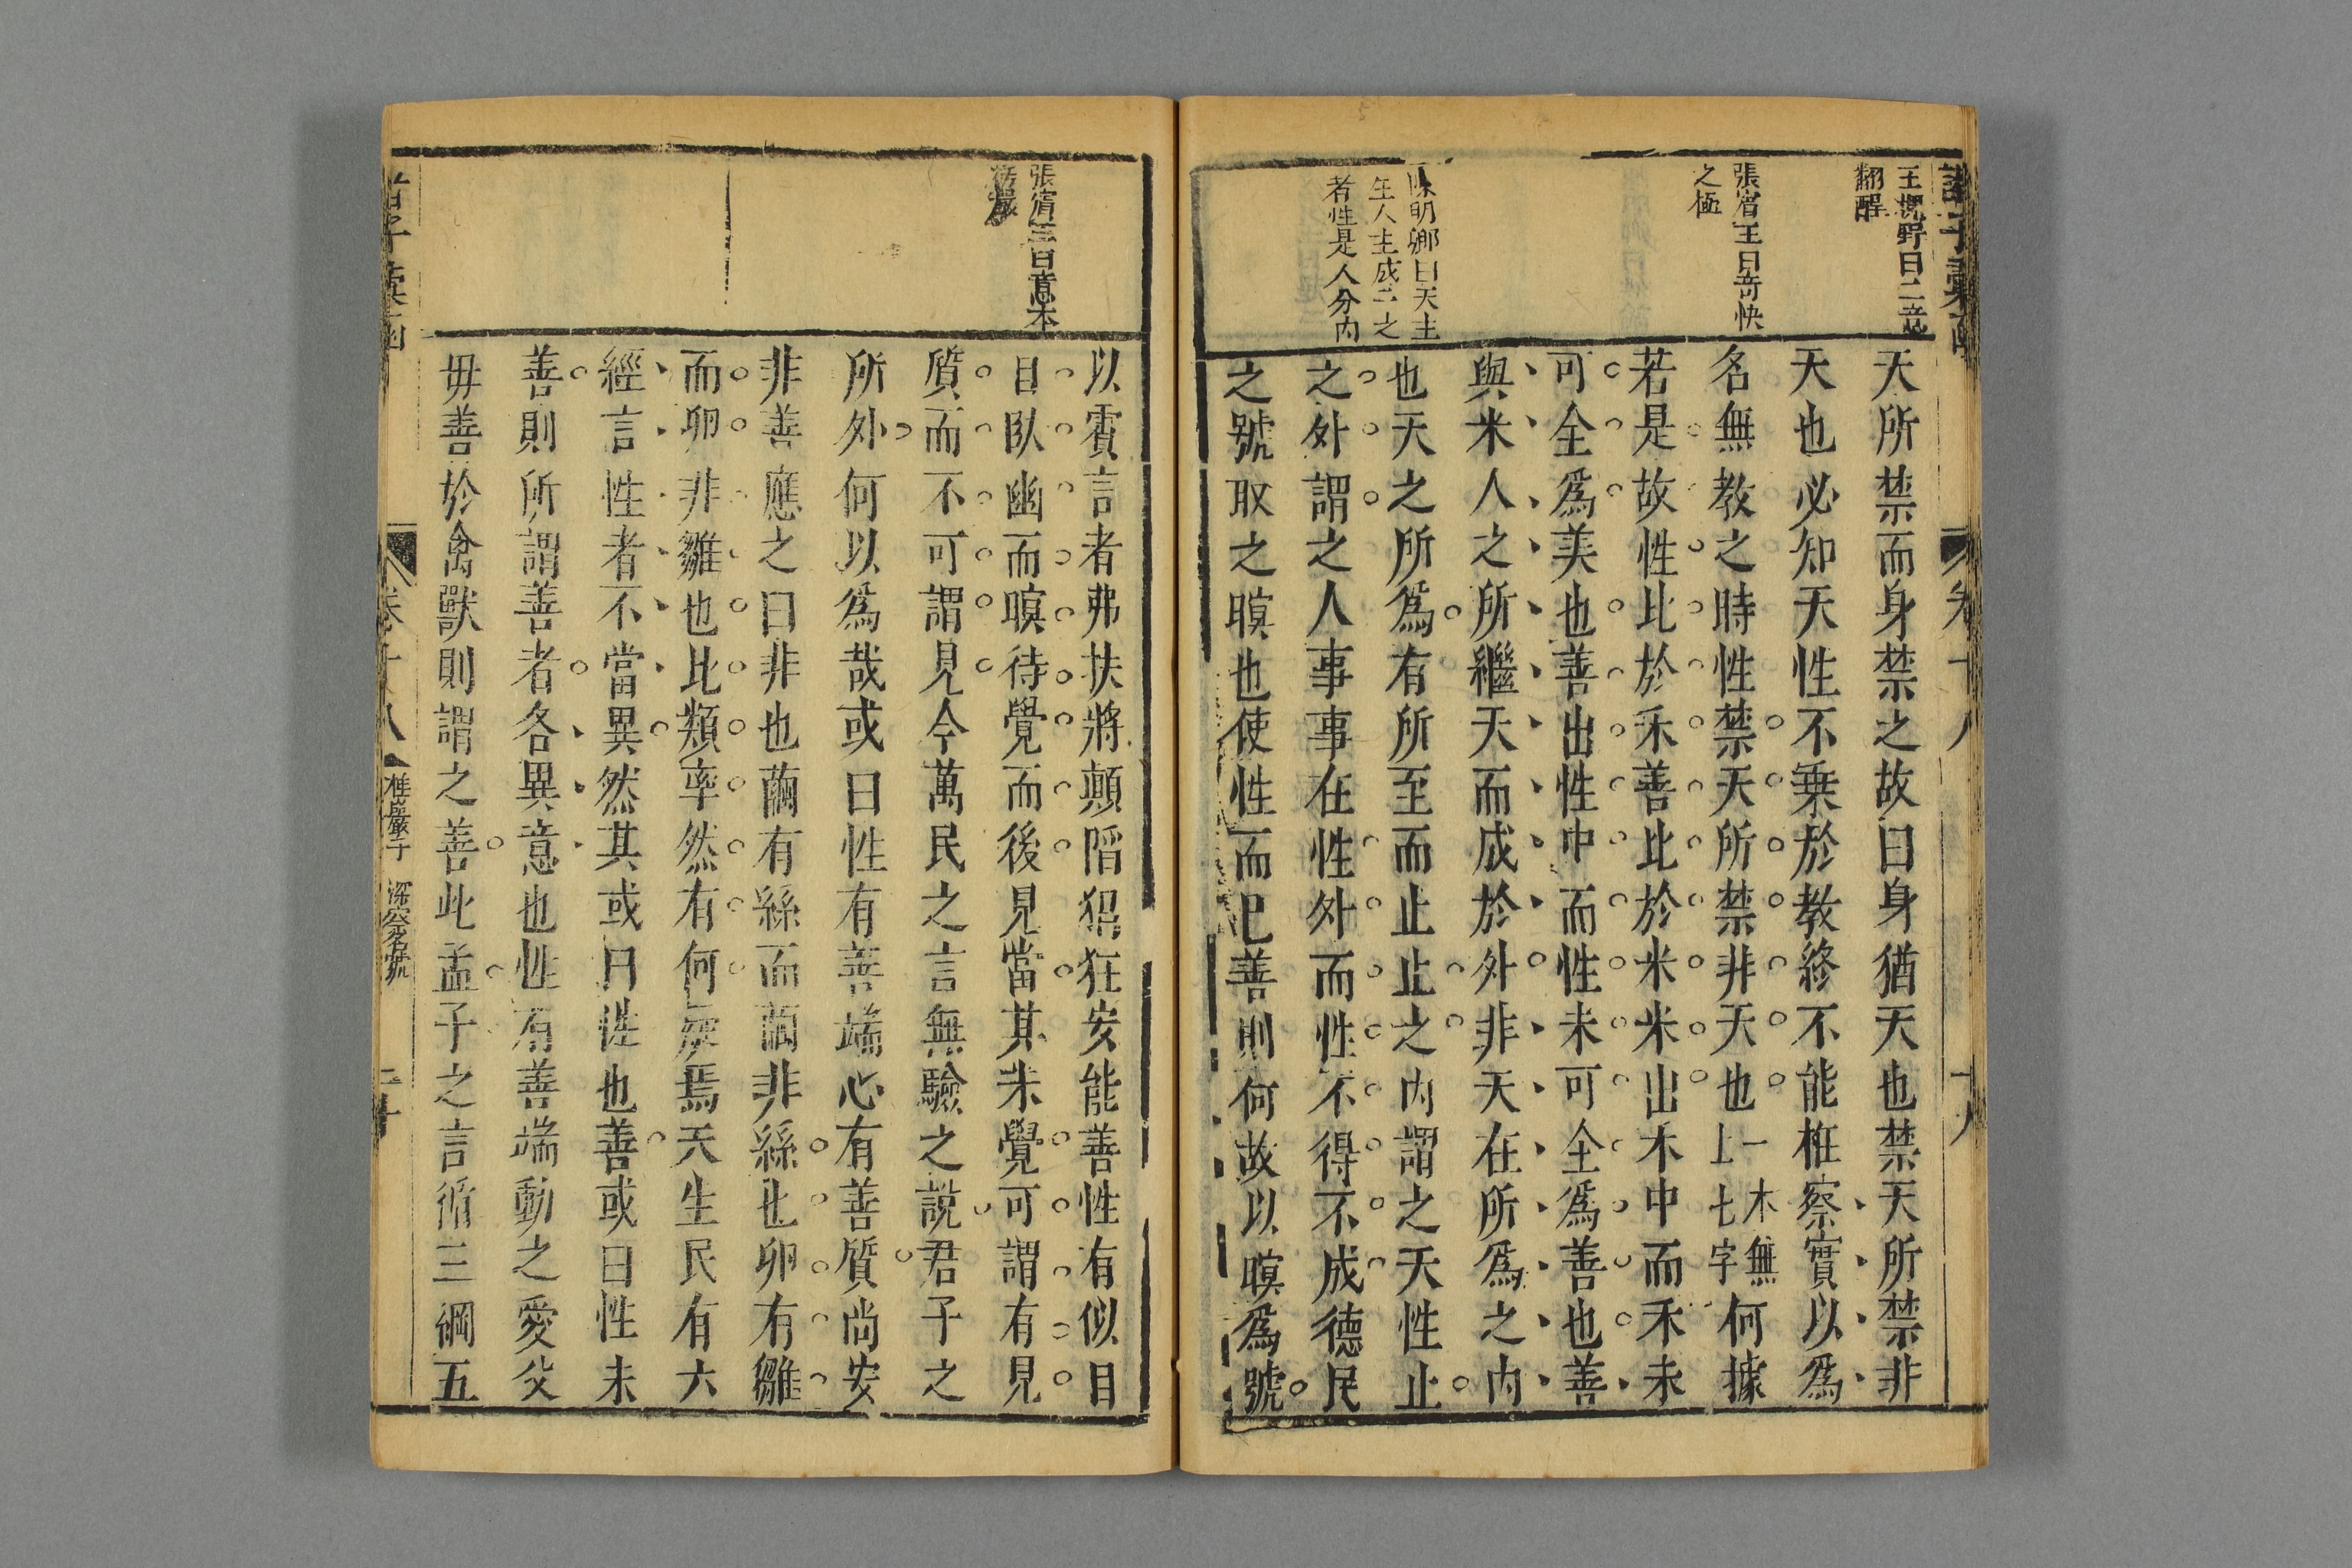 王鳳野曰二意
翻醒
張賓王曰奇快
之極
陳明卿曰天主
生人主成二之
者性是人分内
天所禁而身禁之故曰身猶天也禁天所禁非
天也必知天性不乗於教終不能栣察實以爲
名無教之時性禁天所禁非天也一本無上七字何據
若是故性比於禾善比於米米出禾中而禾未
可全爲美也善出性中而性未可全爲善也善
與米人之所繼天而成於外非天在所爲之内
也天之所爲有所至而止止之内謂之天性止
之外謂之人事事在性外而性不得不成德民
之號取之瞑也使性而已善則何故以瞑爲號
張賓王曰意本
以霣言者弗扶將顛陷猖狂安能善性有似目
目臥幽而瞑待覺而後見當其未覺可謂有見
質而不可謂見今萬民之言無驗之説君子之
所外何以爲哉或曰性有善端心有善質尚安
非善應之曰非也繭有絲而繭非絲也卵有雛
而卵非雛也比類率然有何疑焉天生民有六
經言性者不當異然其或曰性也善或曰性未
善則所謂善者各異意也性有善端動之愛父
毋善於禽獸則謂之善此孟子之言循三綱五
諸子彙函
卷十八
桂巖子
深察名號
二十